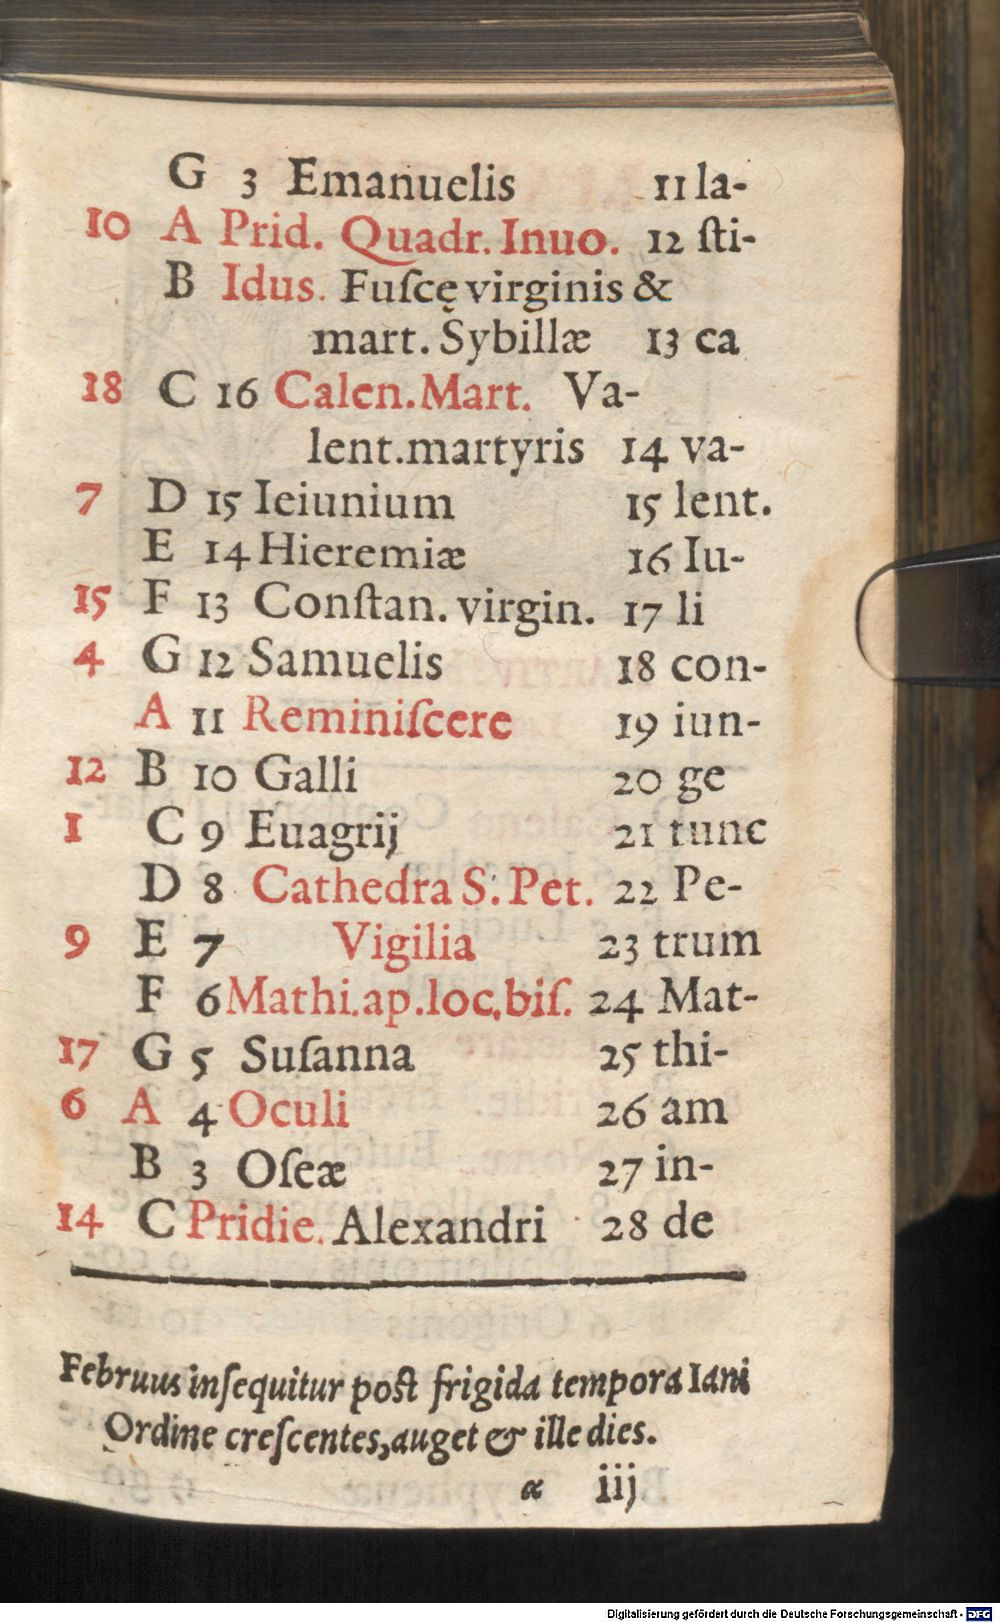 G 3 Emanuelis 11 la-
10 A Prid. Quadr. Inuo. 12 ſti-
B Idus. Fuſcę virginis &
mart. Sybillæ 13 ca
18 C 16 Calen. Mart. Va-
lent. martyris 14 va-
7 D 15 Ieiunium 15 lent.
E 14 Hieremiæ 16 Iu-
15 F 13 Conſtan. virgin. 17 li
4 G 12 Samuelis 18 con-
A 11 Reminiſcere 19 iun-
12 B 10 Galli 20 ge
1 C 9 Euagrij 21 tunc
D 8 Cathedra S. Pet. 22 Pe-
9 E 7 Vigilia 23 trum
F 6 Mathi. ap. loc. biſ. 24 Mat-
17 G 5 Suſanna 25 thi-
6 A 4 Oculi 26 am
B 3 Oſeæ 27 in-
14 C Pridie. Alexandri 28 de
Februus inſequitur poſt frigida tempora Iani
Ordine creſcentes, auget & ille dies.
a iij
Digitalisierung gefördert durch die Deutsche Forschungsgemeinschaft - DFG